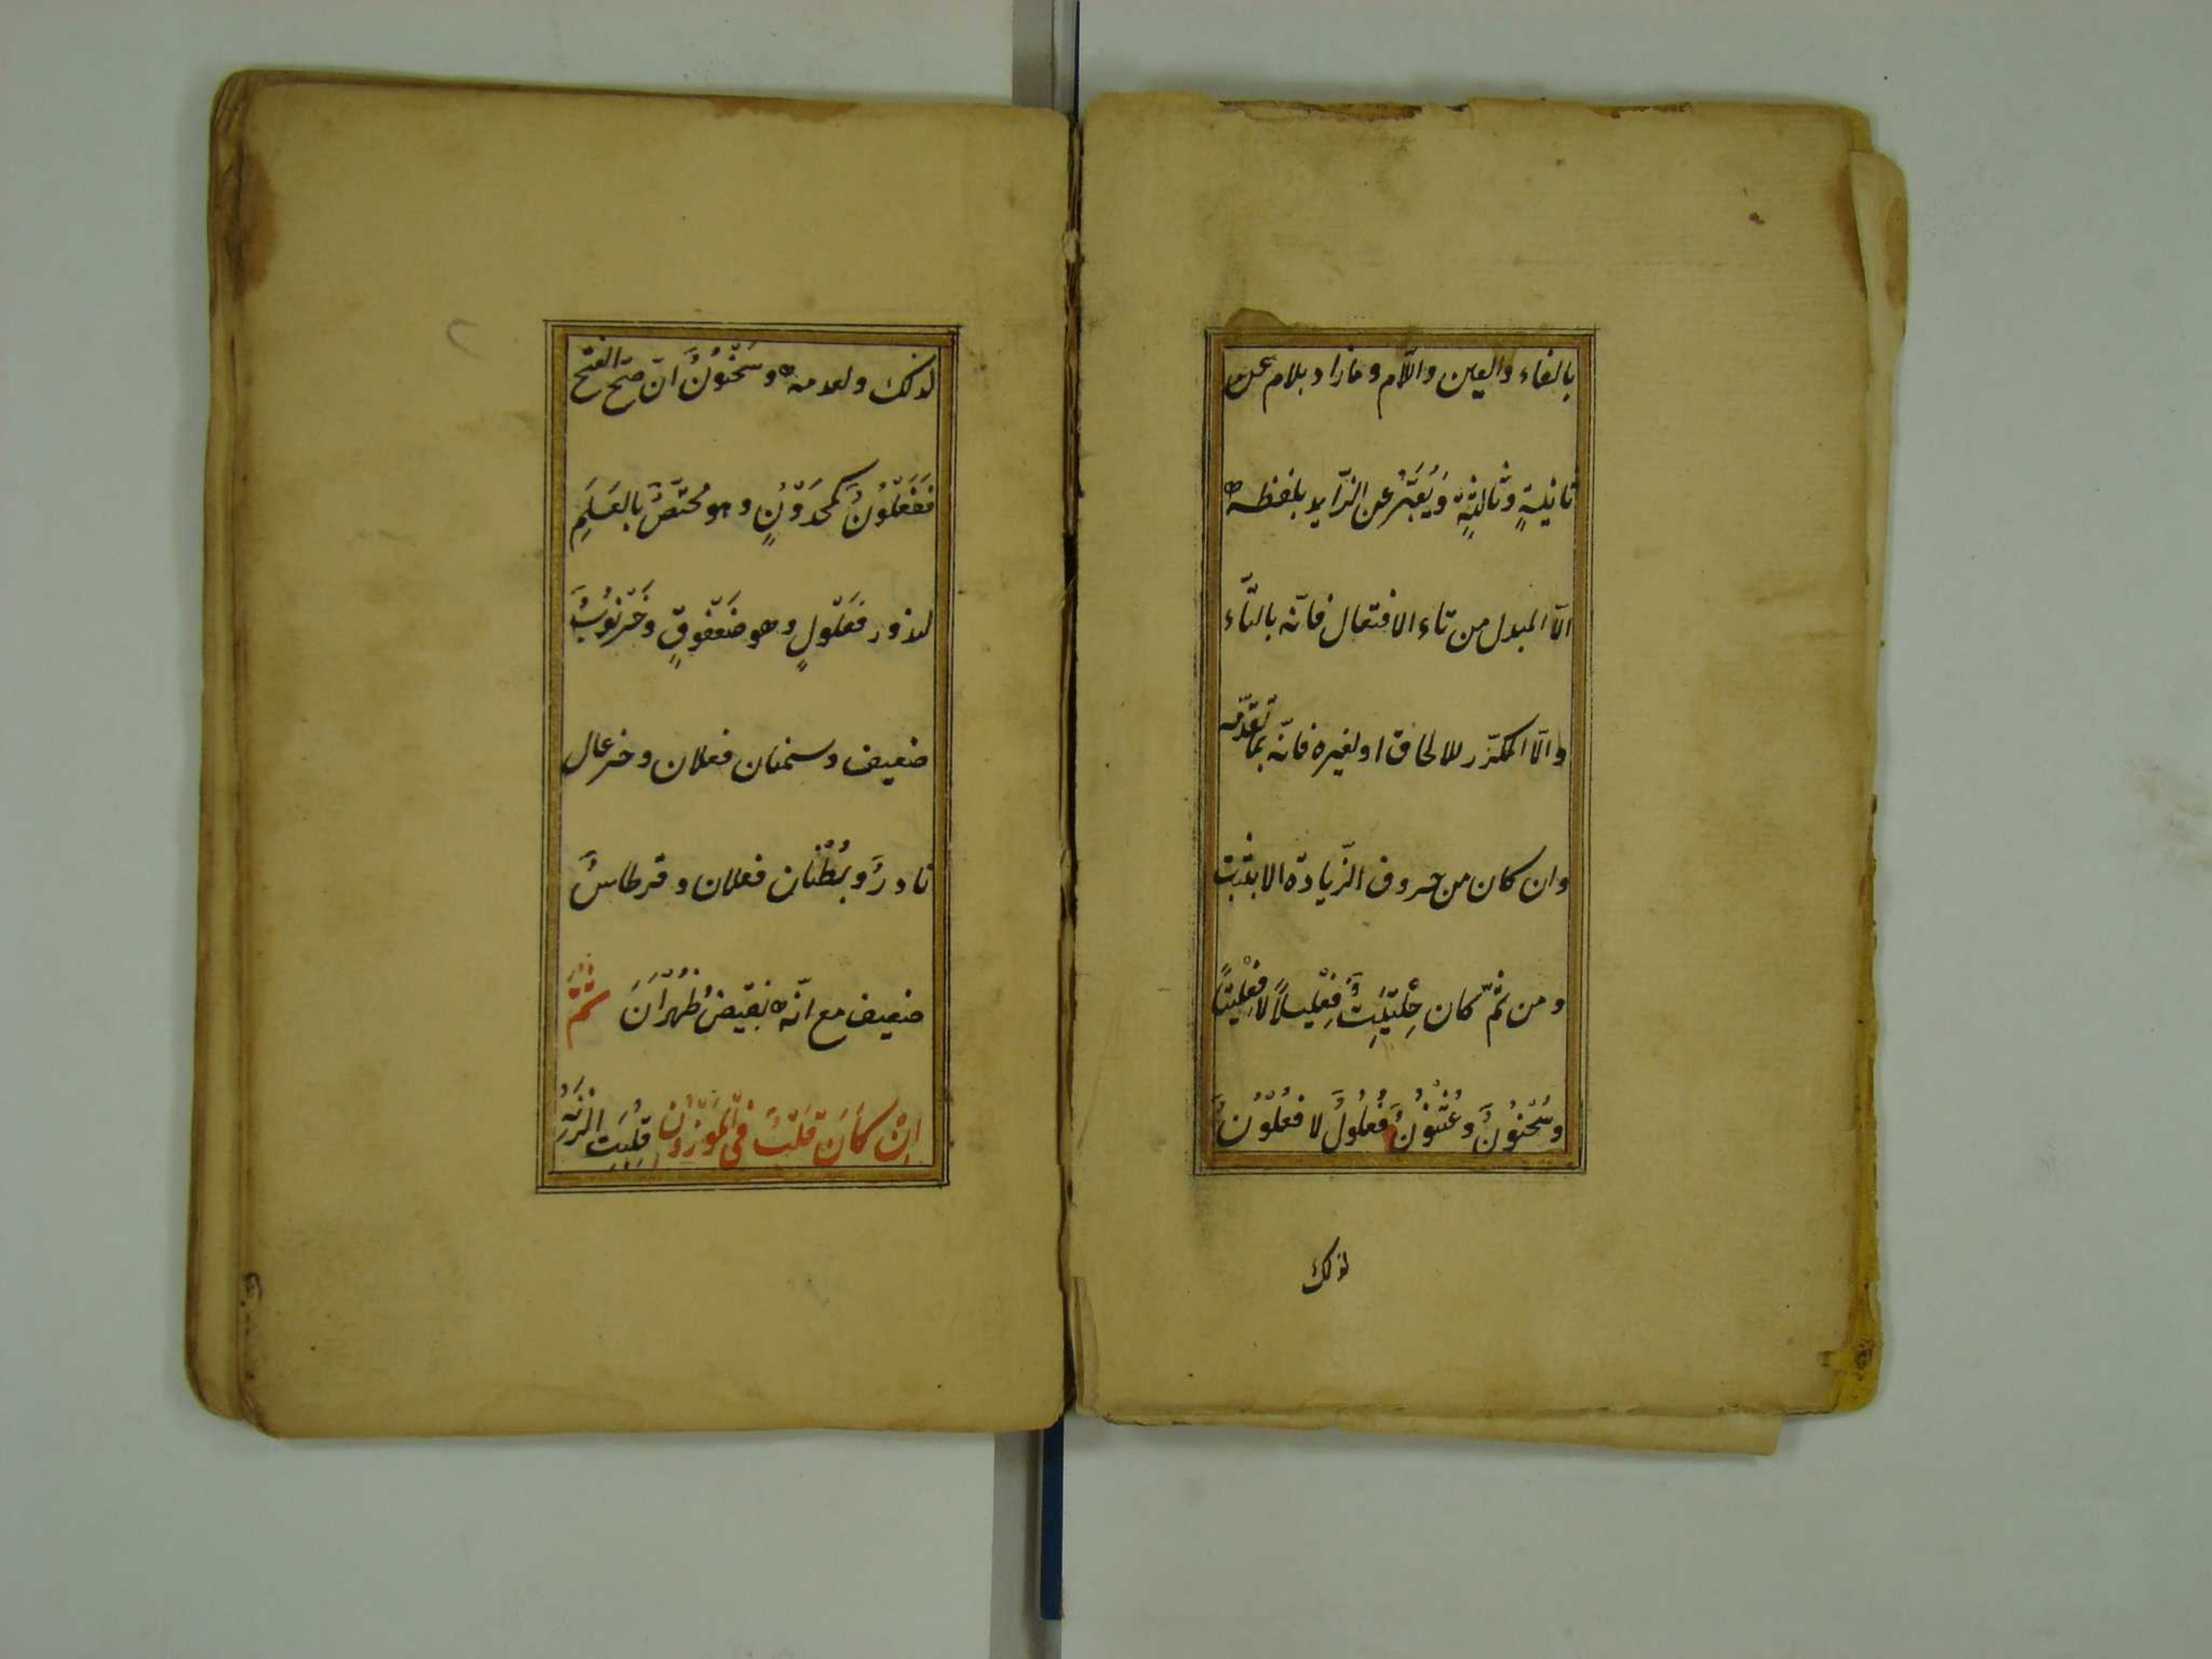 بالفاء والعين واللّام وما زاد بلام
ثانيةٍ وثالثةٍ وَيُعَبَّرُ عن الزّايد بلفظه
الّا المبدل من تاء الافتعال فانّه بالتّاء
والّا المكرّر للالحاق او لغيره فانّه بما تقدّمه
وان كان من حروف الزّيادة الا بثبت
ومن ثمّ كان حِلْتِيتٌ فِعْلِيلاً لا فِعْلِيتًا
وسُحْنُونٌ وعُثْنُونٌ فُعْلُولٌ لا فُعْلُونٌ
لذلك
لذلك ولعدمه وسَحْنُونٌ ان صحّ الفتح
فَفَعْلُونٌ كحَمْدُونٍ وهو مُختَصٌّ بالعَلَمِ
لندور فَعْلُولٍ وهو صَعْفُوقٍ وخَرْنُوبٌ
ضعيف وسمنان فعلان وخزعال
نادرٌ وبُطْنَان فعلان وقرطاسٌ
ضعيف مع انّه نقيضُ ظُهْرَانَ ثُمَّ
اِنْ كَانَ قَلْبٌ فِي الْمَوْزُونِ قُلِبَتِ الزِّنَةُ